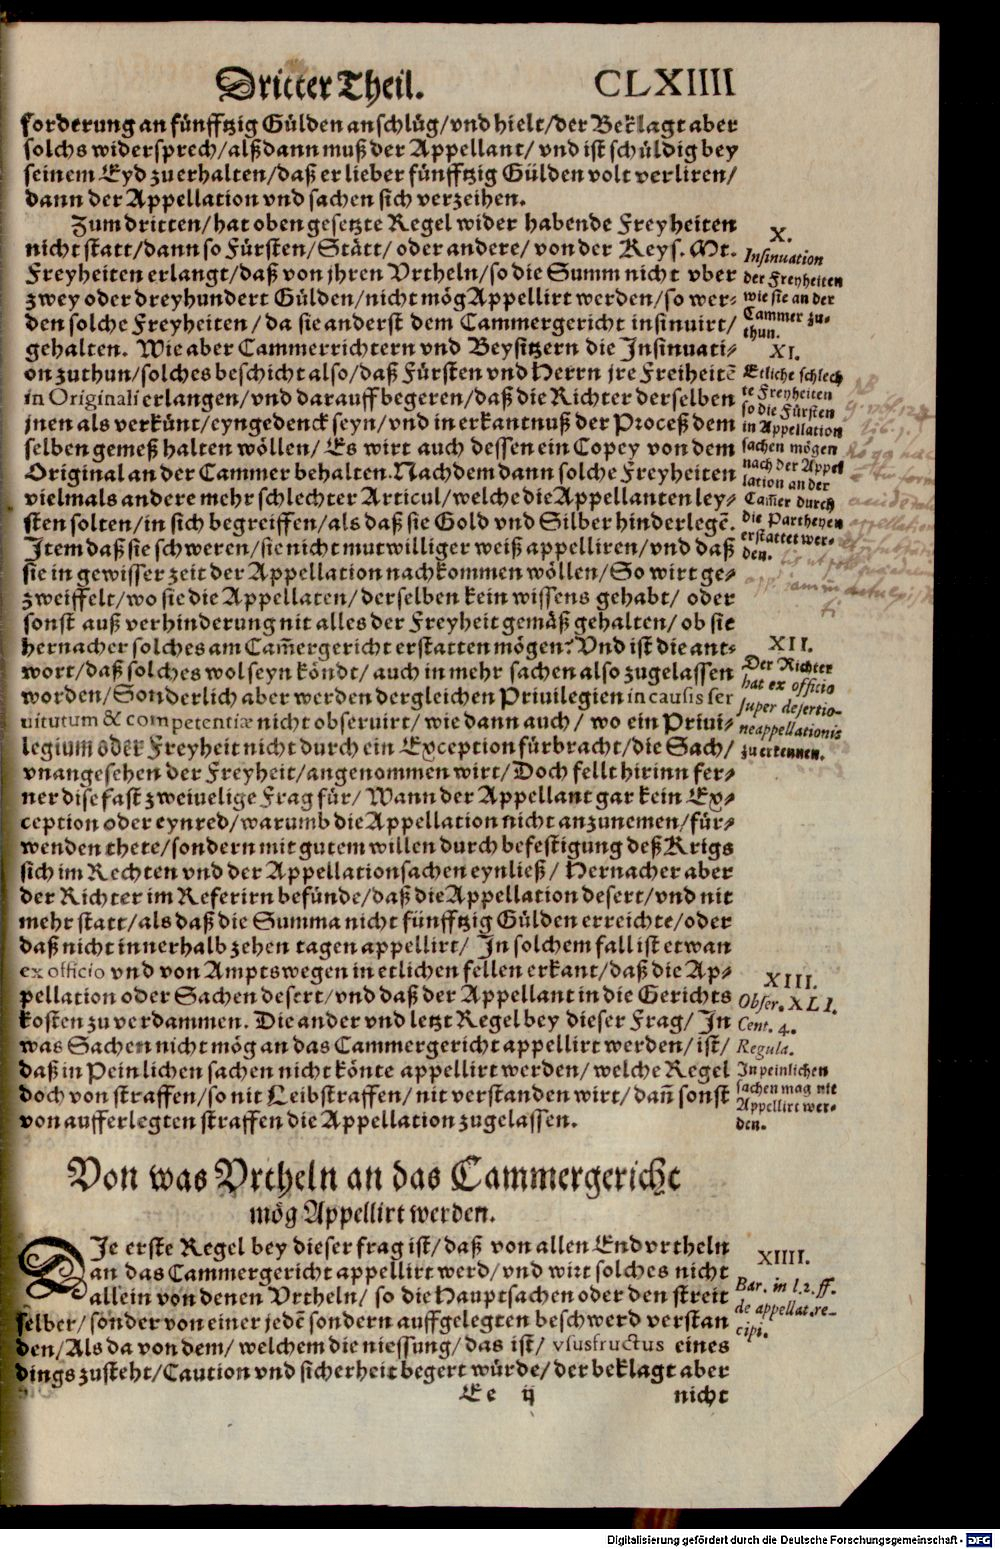 Dritter Theil. CLXIIII
forderung an fünfftzig Gülden anschlüg/vnd hielt/der Beklagt aber
solchs widersprech/alß dann muß der Appellant/ vnd ist schüldig bey
seinem Eyd zu erhalten/daß er lieber fünfftzig Gülden volt verliren/
dann der Appellation vnd sachen sich verzeihen.
Zum dritten/hat oben gesetzte Regel wider habende Freyheiten
nicht statt/dann so Fürsten/Stätt/ oder andere/ von der Keys. Mt.
Freyheiten erlangt/daß von jhren Vrtheln/so die Summ nicht vber
zwey oder dreyhundert Gülden/nicht mög Appellirt werden/so wer-
den solche Freyheiten/da sie anderst dem Cammergericht insinuirt/
gehalten. Wie aber Cammerrichtern vnd Beysitzern die Insinuati-
on zuthun/solches beschicht also/daß Fürsten vnd Herrn jre Freiheitē
in Originali erlangen/vnd darauff begeren/daß die Richter derselben
jnen als verkünt/eyngedenck seyn/vnd in erkantnuß der Proceß dem
selben gemeß halten wöllen/ Es wirt auch dessen ein Copey von dem
Original an der Cammer behalten. Nach dem dann solche Freyheiten
vielmals andere mehr schlechter Articul/welche die Appellanten ley-
sten solten/in sich begreiffen/als daß sie Gold vnd Silber hinderlegē.
Item daß sie schweren/sie nicht mutwilliger weiß appelliren/vnd daß
sie in gewisser zeit der Appellation nachkommen wöllen/So wirt ge-
zweiffelt/wo sie die Appellaten/derselben kein wissens gehabt/ oder
sonst auß verhinderung nit alles der Freyheit gemäß gehalten/ob sie
hernacher solches am Cam̄ergericht erstatten mögen? Vnd ist die ant-
wort/daß solches wol seyn köndt/auch in mehr sachen also zugelassen
worden/Sonderlich aber werden dergleichen Priuilegien in causis ser
uitutum & competentiæ nicht obseruirt/wie dann auch/ wo ein Priui-
legium oder Freyheit nicht durch ein Exception fürbracht/die Sach/
vnangesehen der Freyheit/angenommen wirt/Doch fellt hirinn fer-
ner dise fast zweiuelige Frag für/ Wann der Appellant gar kein Ex-
ception oder eynred/warumb die Appellation nicht anzunemen/für-
wenden thete/sondern mit gutem willen durch befestigung deß Krigs
sich im Rechten vnd der Appellationsachen eynließ/ Hernacher aber
der Richter im Referirn befünde/daß die Appellation desert/vnd nit
mehr statt/als daß die Summa nicht fünfftzig Gülden erreichte/oder
daß nicht innerhalb zehen tagen appellirt/ In solchem fall ist etwan
ex officio vnd von Ampts wegen in etlichen fellen erkant/daß die Ap-
pellation oder Sachen desert/vnd daß der Appellant in die Gerichts
kosten zu verdammen. Die ander vnd letzt Regel bey dieser Frag/ In
was Sachen nicht mög an das Cammergericht appellirt werden/ist/
daß in Peinlichen sachen nicht könte appellirt werden/welche Regel
doch von straffen/so nit Leibstraffen/nit verstanden wirt/dañ sonst
von aufferlegten straffen die Appellation zugelassen.
X.
Insinuation
der Freyheiten
wie sie an der
Cammer zu-
thun.
XI.
Etliche schlech
te Freyheiten
so die Fürsten
in Appellation
sachen mögen
nach der Appel
lation an der
Cam̄er durch
die Partheyen
erstattet wer-
den.
XII.
Der Richter
hat ex officio
super desertio-
ne appellationis
zu erkennen.
XIII.
Obser. XLI.
Cent. 4.
Regula.
In peinlichen
sachen mag nit
Appellirt wer-
den.
Von was Vrtheln an das Cammergericht
mög Appellirt werden.
DIe erste Regel bey dieser frag ist/daß von allen Endvrtheln
an das Cammergericht appellirt werd/vnd wirt solches nicht
allein von denen Vrtheln/ so die Hauptsachen oder den streit
selber/sonder von einer jedē sondern auffgelegten beschwerd verstan
den/Als da von dem/ welchem die niessung/das ist/ vsusfructus eines
dings zusteht/Caution vnd sicherheit begert würde/der beklagt aber
XIIII.
Bar. in l.2. ff.
de appellat. re-
cipi.
Ee ij nicht
Digitalisierung gefördert durch die Deutsche Forschungsgemeinschaft - DFG